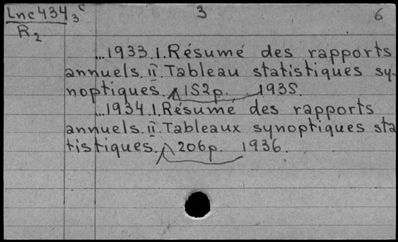 Lnc434₃ᶜ 3 6
R₂
...1933.I.Résumé des rapports
annuels.II.Tableau statistiques sy-
noptiques. 152p. 1935.
...1934.I.Résumé des rapports
annuels.II.Tableaux synoptiques sta
tistiques. 206p. 1936.